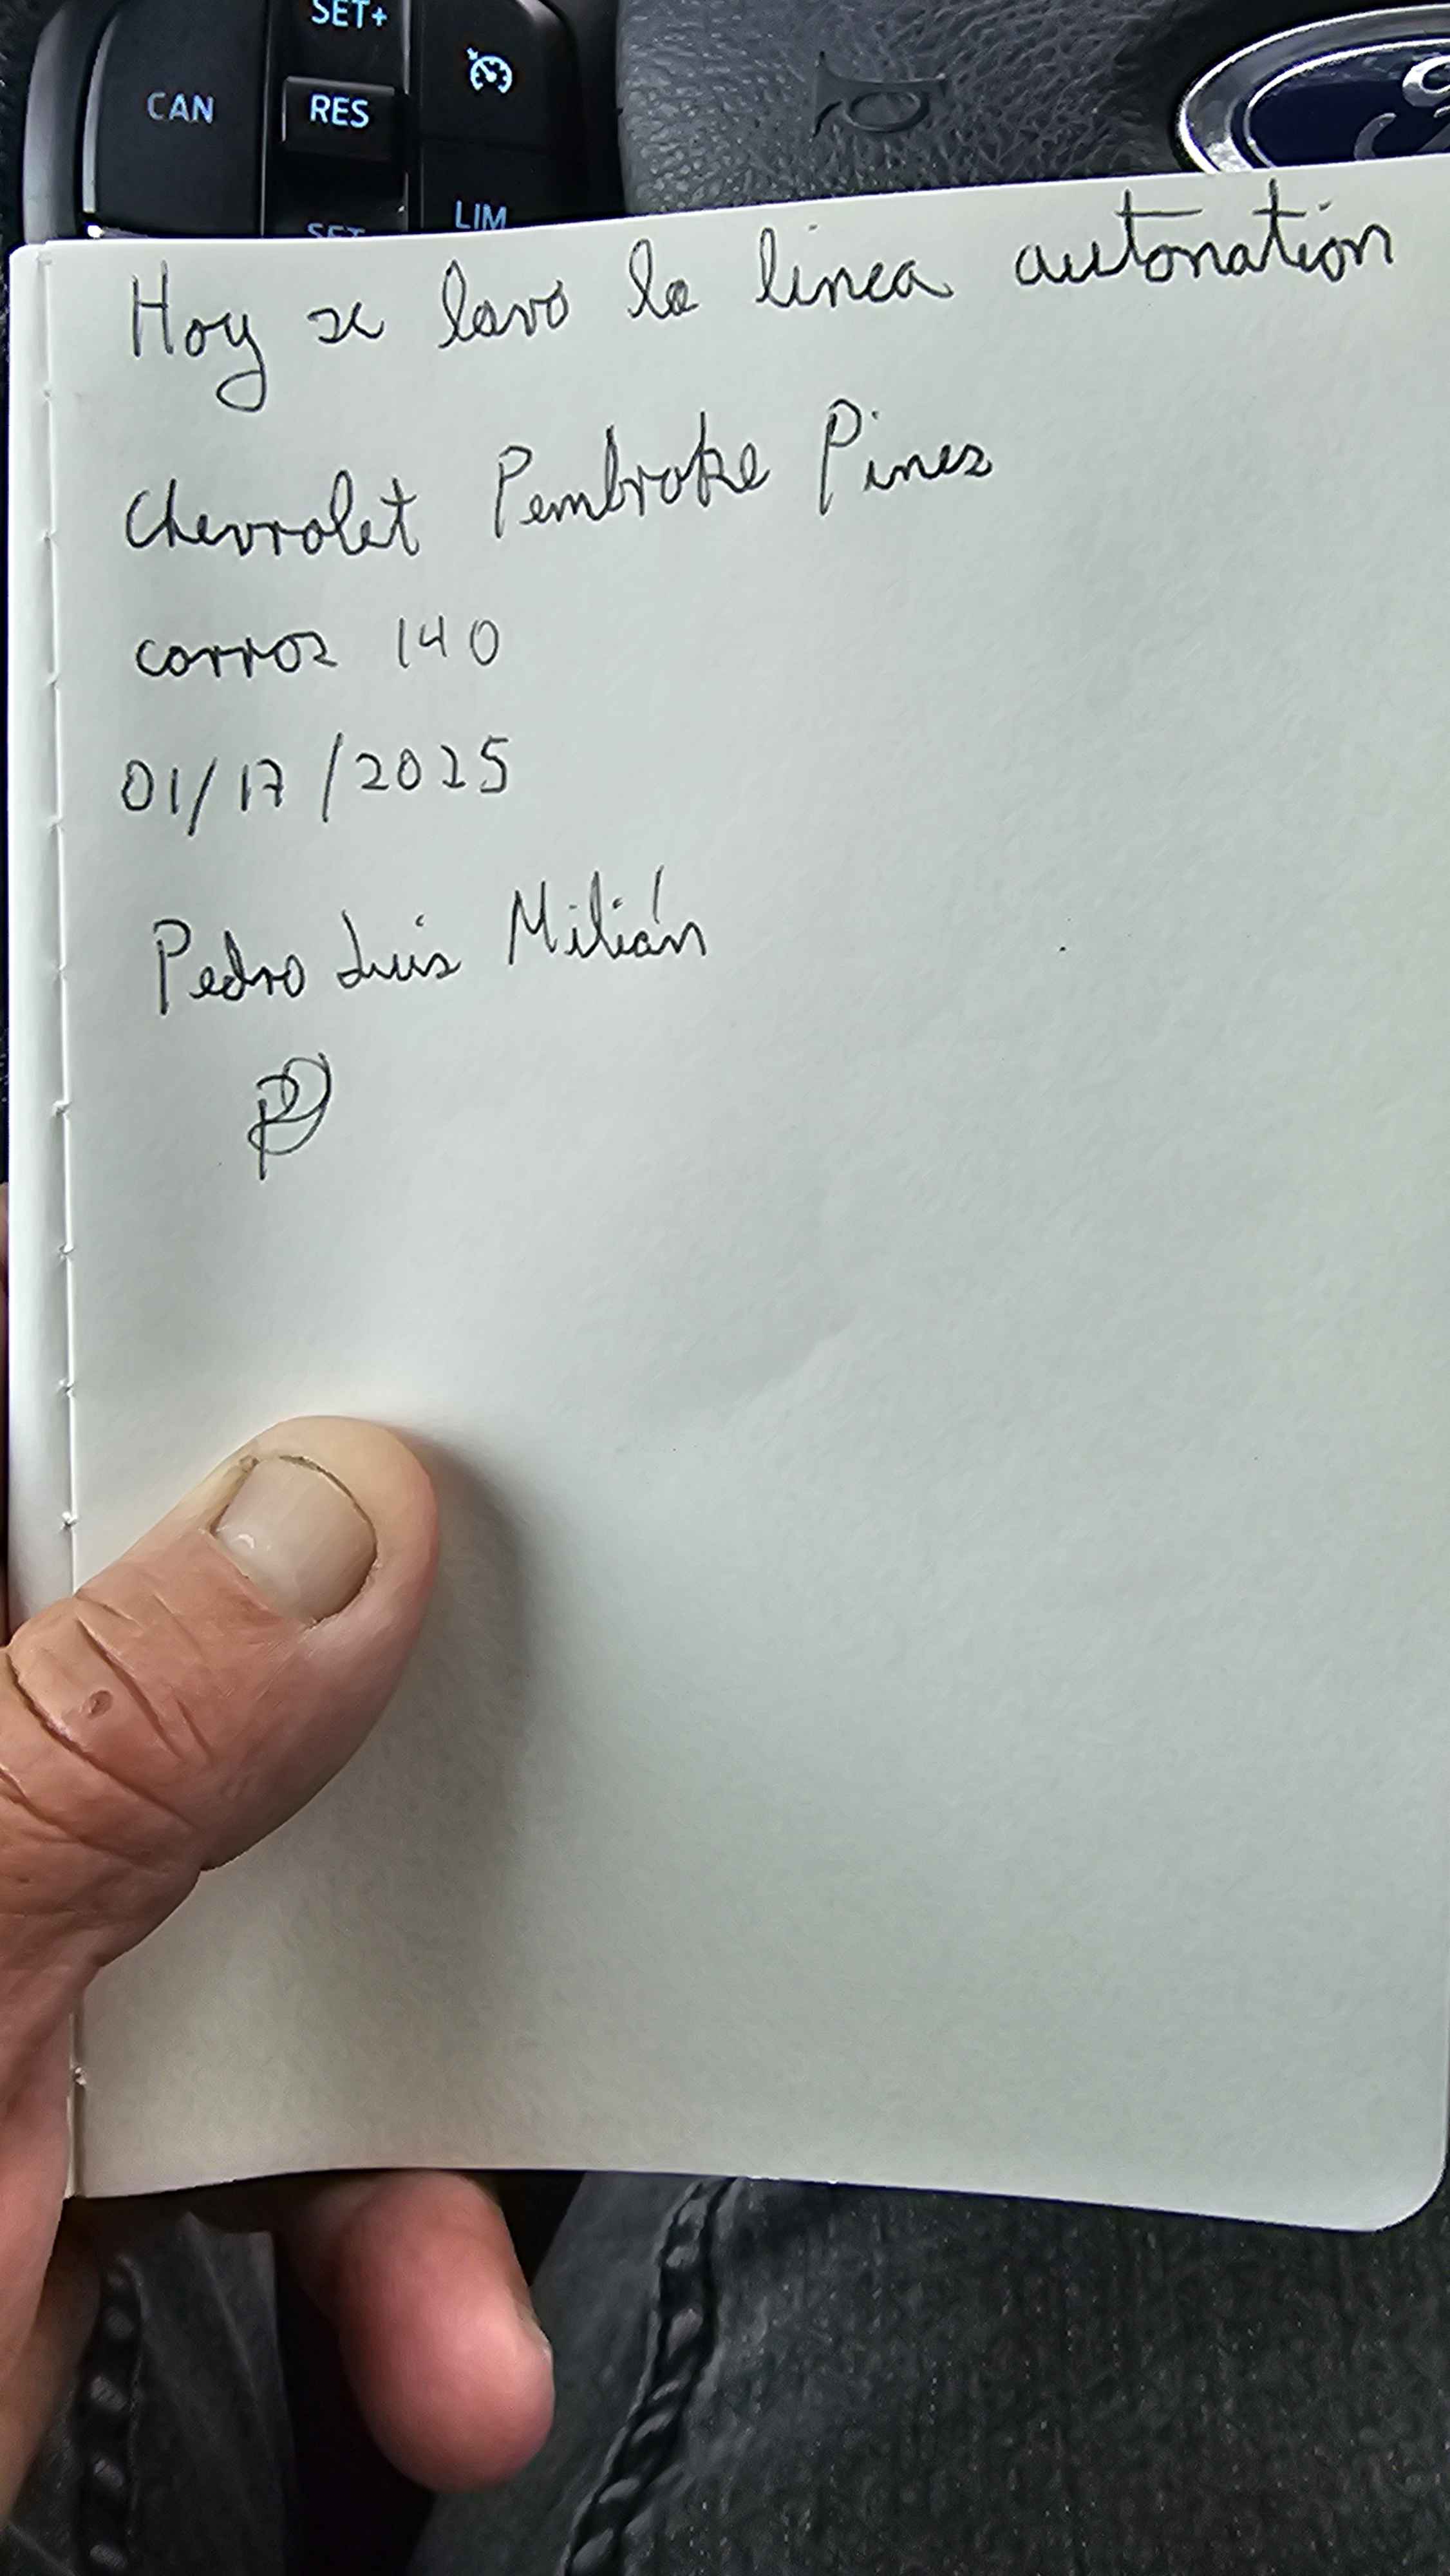 SET+
CAN
RES
LIM
SET-
Hoy se lavo la linea autonation
Chevrolet Pembroke Pines
carros 140
01/17/2025
Pedro Luis Milián